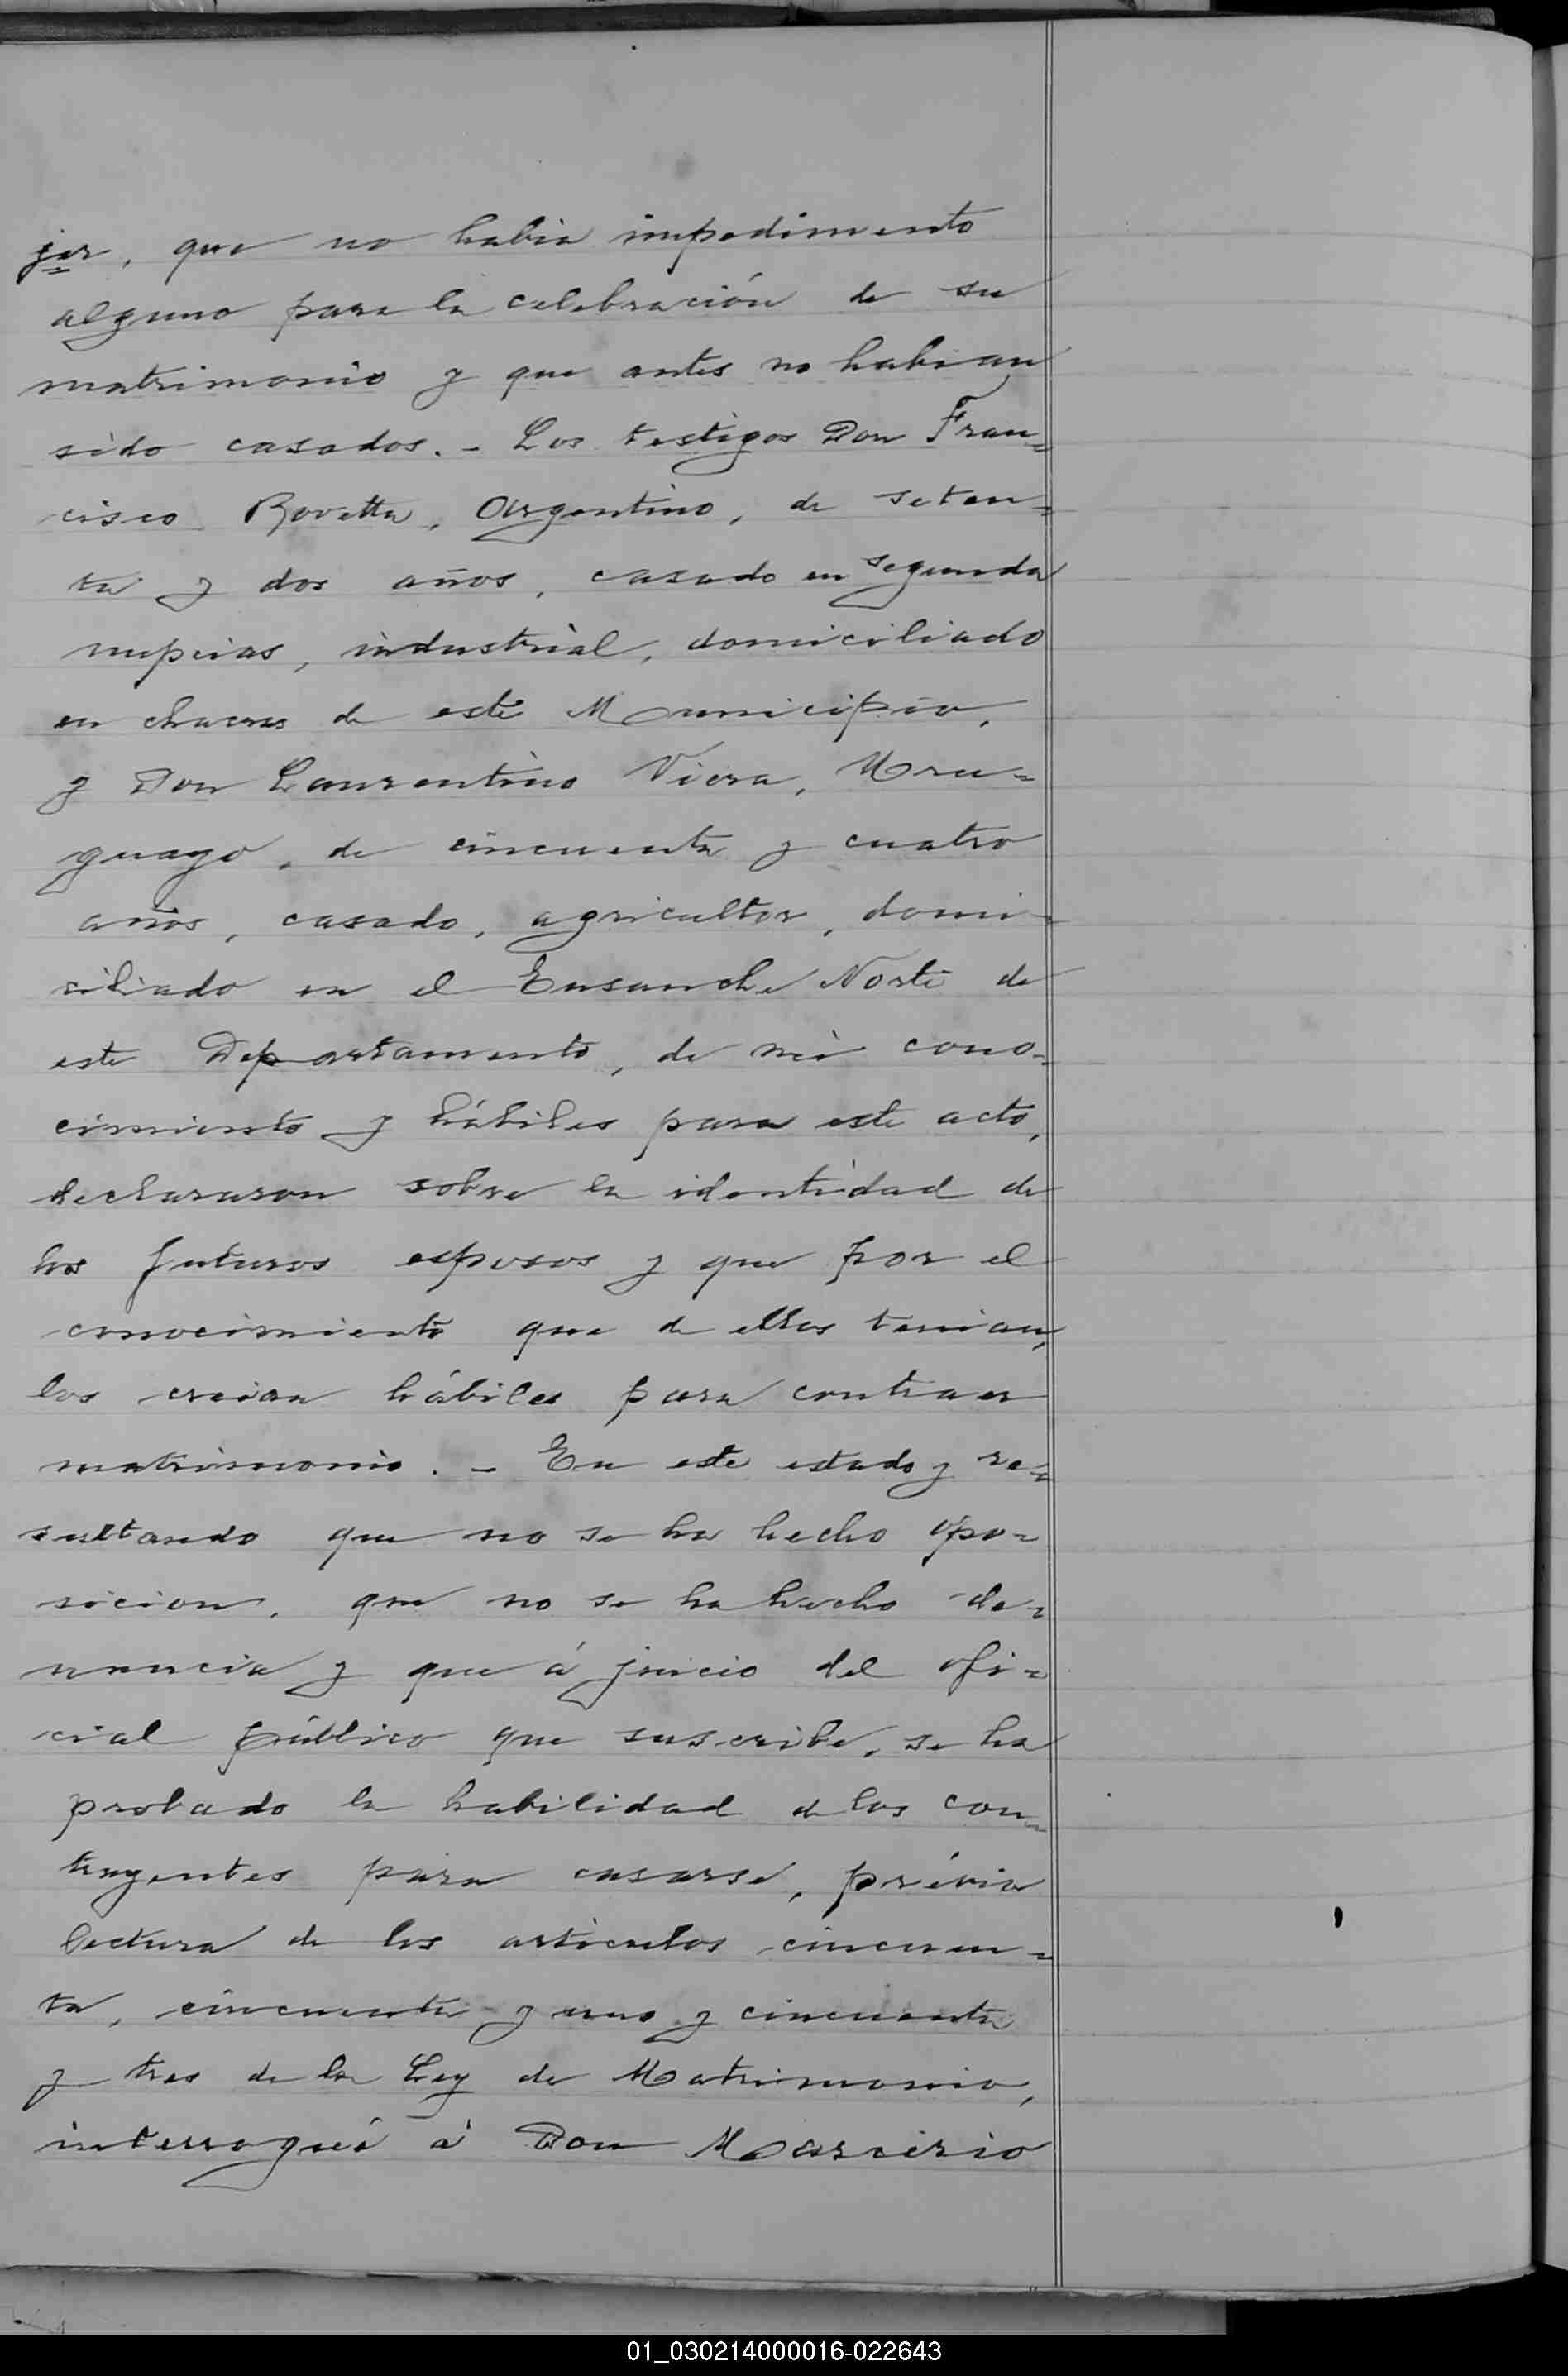 jer, que no habia impedimento
alguno para la celebración de su
matrimonio y que antes no habian
sido casados. - Los testigos Don Fran=
cisco Rovetta, Argentino, de seten=
ta y dos años, casado en segunda
nupcias, industrial, domiciliado
en chacras de este Municipio,
y Don Laurentino Viera, Uru=
guayo, de cincuenta y cuatro
años, casado, agricultor, domi=
ciliado en el Ensanche Norte de
este Departamento, de mi cono=
cimiento y hábiles para este acto,
declararon sobre la identidad de
los futuros esposos y que por el
conocimiento que de ellos tenian,
los creian hábiles para contraer
matrimonio. - En este estado y re=
sultando que no se ha hecho opo=
sicion, que no se ha hecho de=
nuncia y que á juicio del ofi=
cial público que suscribe, se ha
probado la habilidad de los con=
trayentes para casarse, prévia
lectura de los articulos cincuen=
ta, cincuenta y uno y cincuenta
y tres de la Ley de Matrimonio,
interrogué á Don Marcirio
01_030214000016-022643